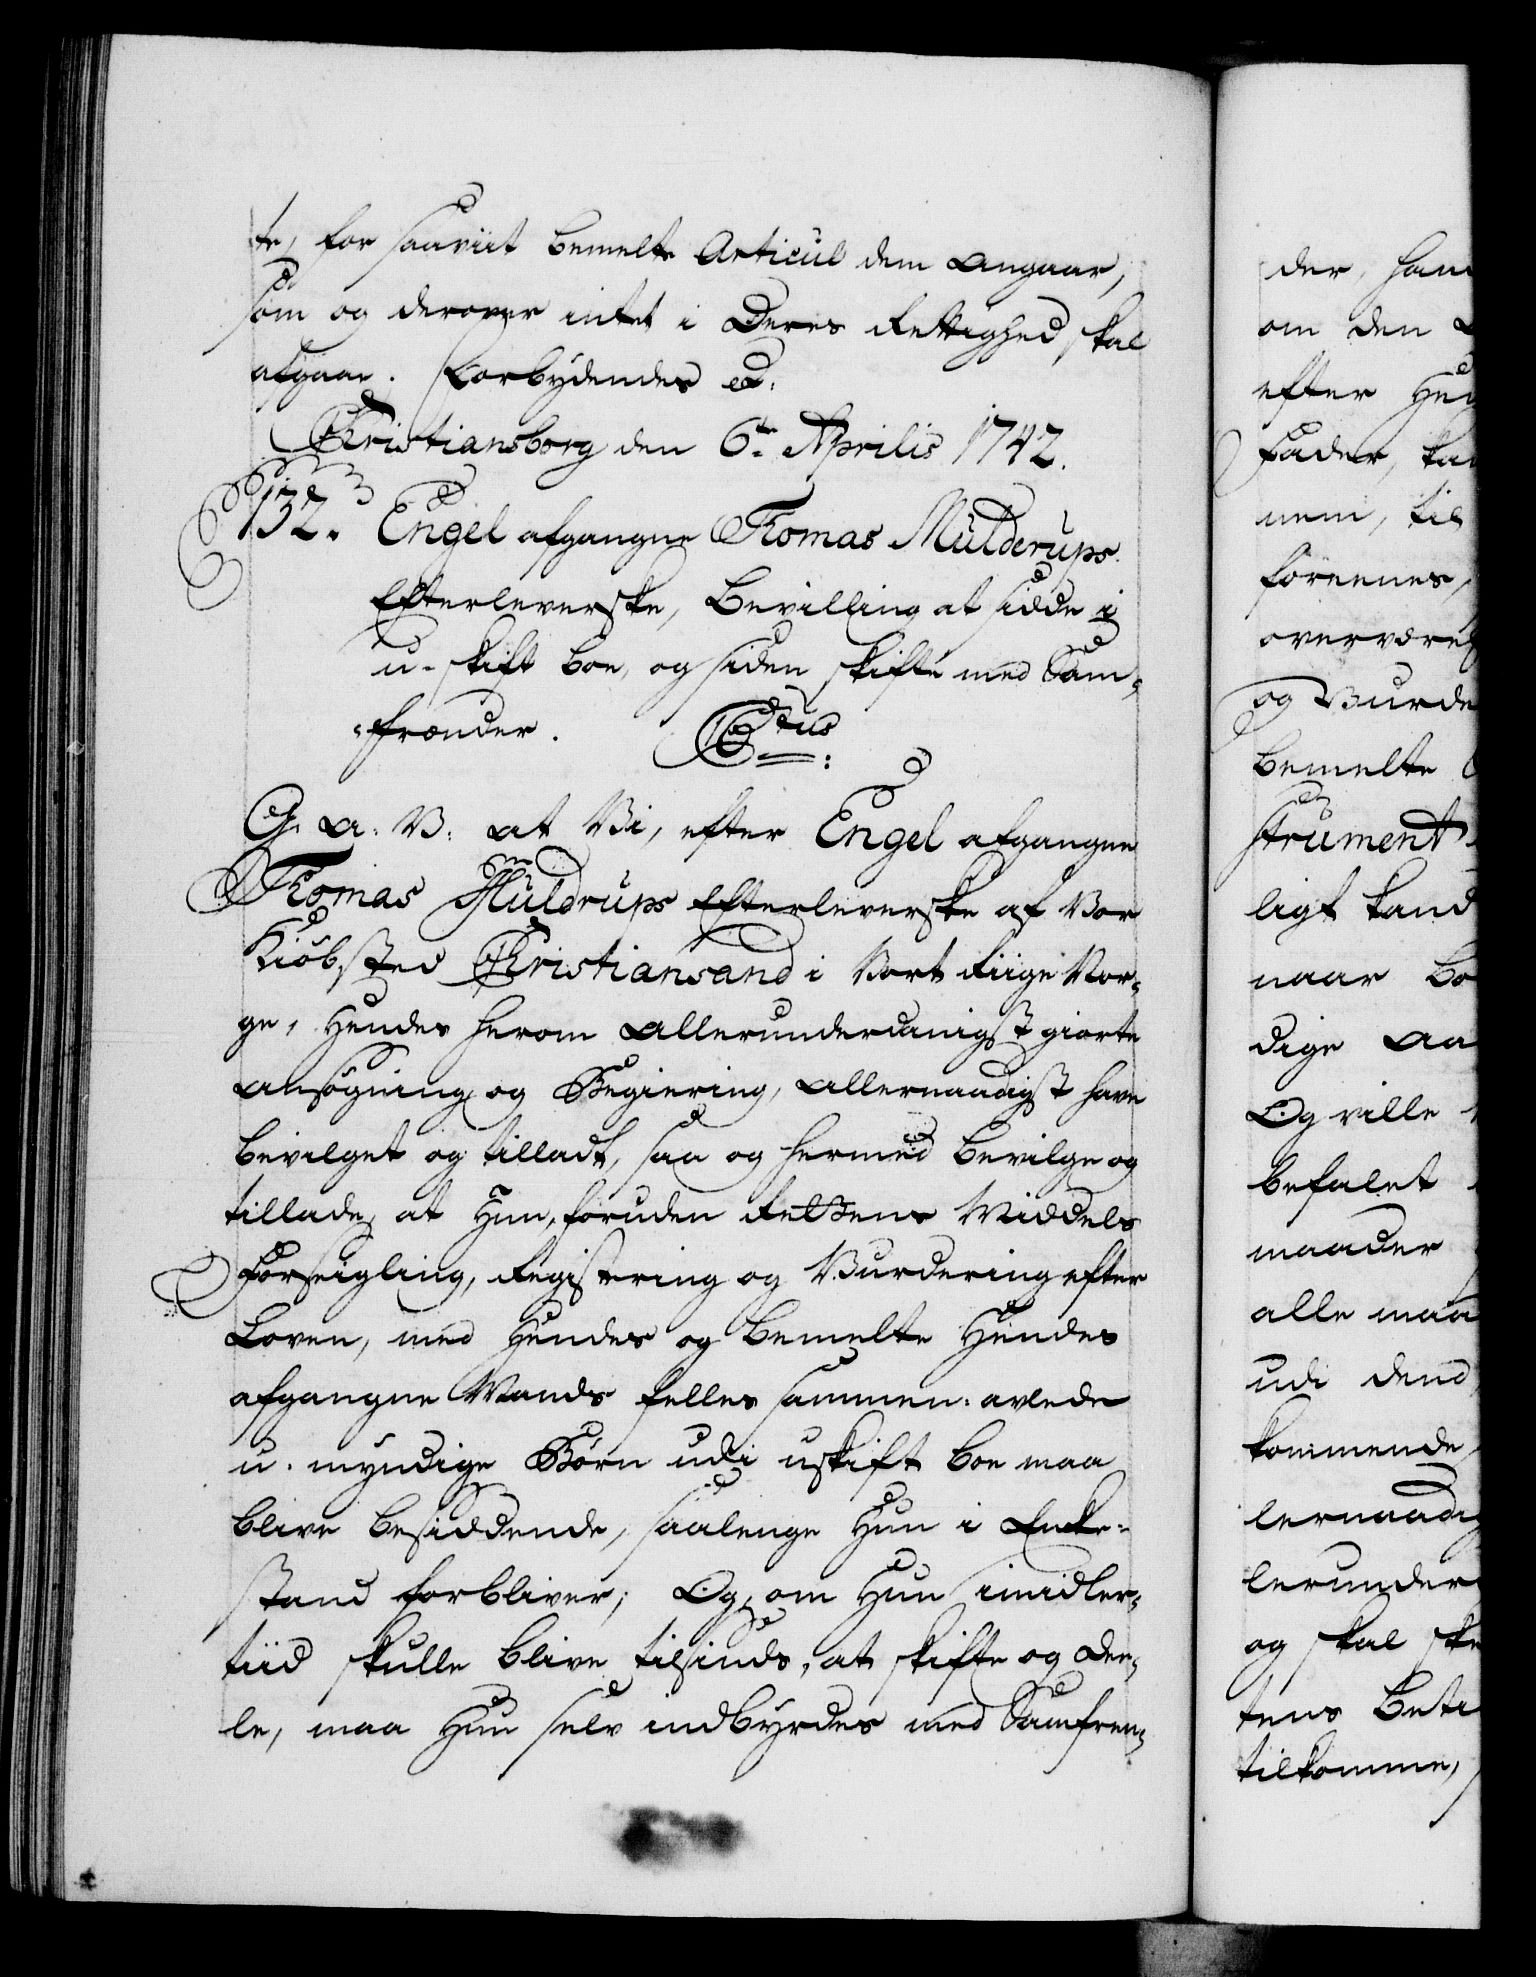 te, for saaviit bemelte Articul dem angaar,
som og derover intet i Deres Rettighed skal
afgaae. Forbydendes etc.
Christiansborg den 6te Aprilis 1742.
132. Engel afgangne Thomas Mulderups
Efterleverske, Bevilling at sidde i
u-skift boe, og siden skifte med Sam-
frænder. Ctus
G. A. V. at Vi, efter Engel afgangne
Thomas Huldrups Efterleverske af Vor
Kiøbsted Christiansand i Vort Riige Nor-
ge, Hendes herom allerunderdanigst giorte
ansøgning og Begiering, allernaadigst have
bevilget og tilladt, saa og hermed bevilge og
tillade, at Hun, foruden Rettens Middels
Forseigling, Registering og Vurdering efter
Loven, med Hendes og bemelte Hendes
afgangne Mands felles sammen-avlede
u-myndige Børn udi uskift boe maa
blive besiddende, saalenge Hun i Enke-
stand forbliver; Og, om Hun imidler-
tiid skulle blive tilsinds, at skifte og dee-
le, maa Hun selv indbyrdes med Samfren-
der, han
om den
efter
Fader,
nem, til
foreenes,
overværel
og Vurde
bemelte
strument
ligt kand
naar bo
dige aa
Og ville
befalet
maader
alle maa
udi dend
kommende,
lernaadig
lerunder
og skal ske
tens beti
tilkomme,